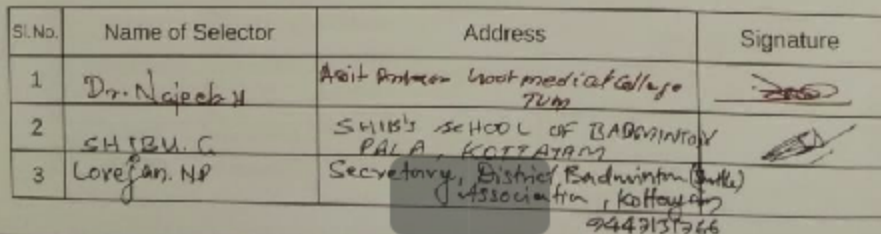 Sl.No. Name of Selector Address Signature
1 Dr. Najeeb Asit medical College
TVM
2 SHIBU. C SHIB'S SCHOOL OF BADMINTON
PALA, KOTTAYAM
3 Lorejan. NP Secretary, District Badminton (Shuttle)
Association, Kottayam
9447131766